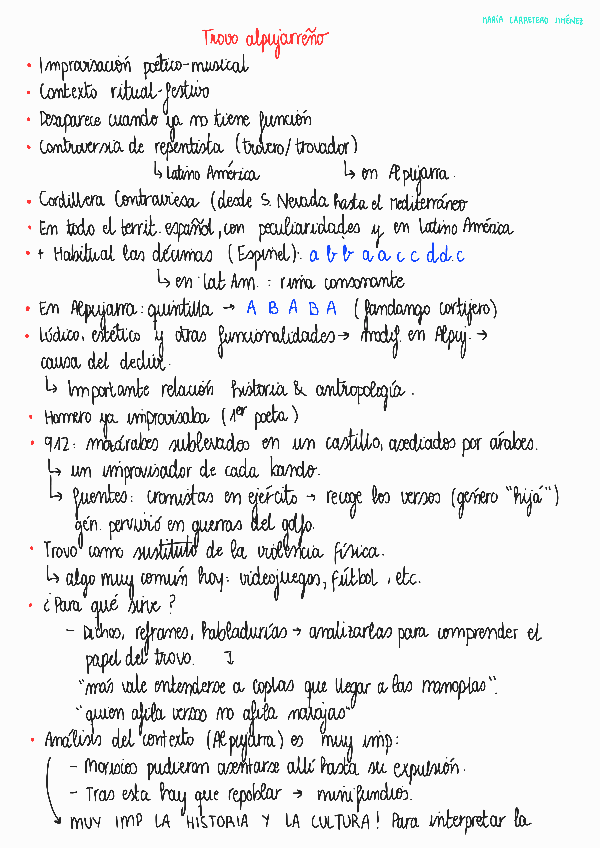 MARÍA CARRETERO JIMÉNEZ
Trovo alpujarreño
• Improvisación poético-musical
• Contexto ritual-festivo
• Desaparece cuando ya no tiene función
• Controversia de repentista (trovero/trovador)
↳ Latino América ↳ en Alpujarra.
• Cordillera Contraviesa (desde S. Nevada hasta el Mediterráneo
• En todo el territ. español, con peculiaridades y en Latino América
• + Habitual las décimas (Espinel): a b b a a c c d d c
↳ en Lat Am. : rima consonante
• En Alpujarra: quintilla → A B A B A (fandango cortijero)
• Lúdico, estético y otras funcionalidades → modif. en Alpuj. →
causa del declive.
↳ Importante relación historia & antropología.
• Homero ya improvisaba (1er poeta)
• 912: mozárabes sublevados en un castillo, asediados por árabes.
↳ un improvisador de cada bando.
↳ fuentes: cronistas en ejército → recoge los versos (género "hijá")
gén. pervivió en guerras del golfo.
• Trovo como sustituto de la violencia física.
↳ algo muy común hoy: videojuegos, fútbol, etc.
• ¿Para qué sirve?
- Dichos, refranes, habladurías → analizarlas para comprender el
papel del trovo.
"más vale entenderse a coplas que llegar a las manoplas".
"quien afila versos no afila navajas"
• Análisis del contexto (Alpujarra) es muy imp:
- Moriscos pudieron asentarse allí hasta su expulsión.
- Tras esta hay que repoblar → minifundios.
→ MUY IMP LA HISTORIA Y LA CULTURA! Para interpretar la